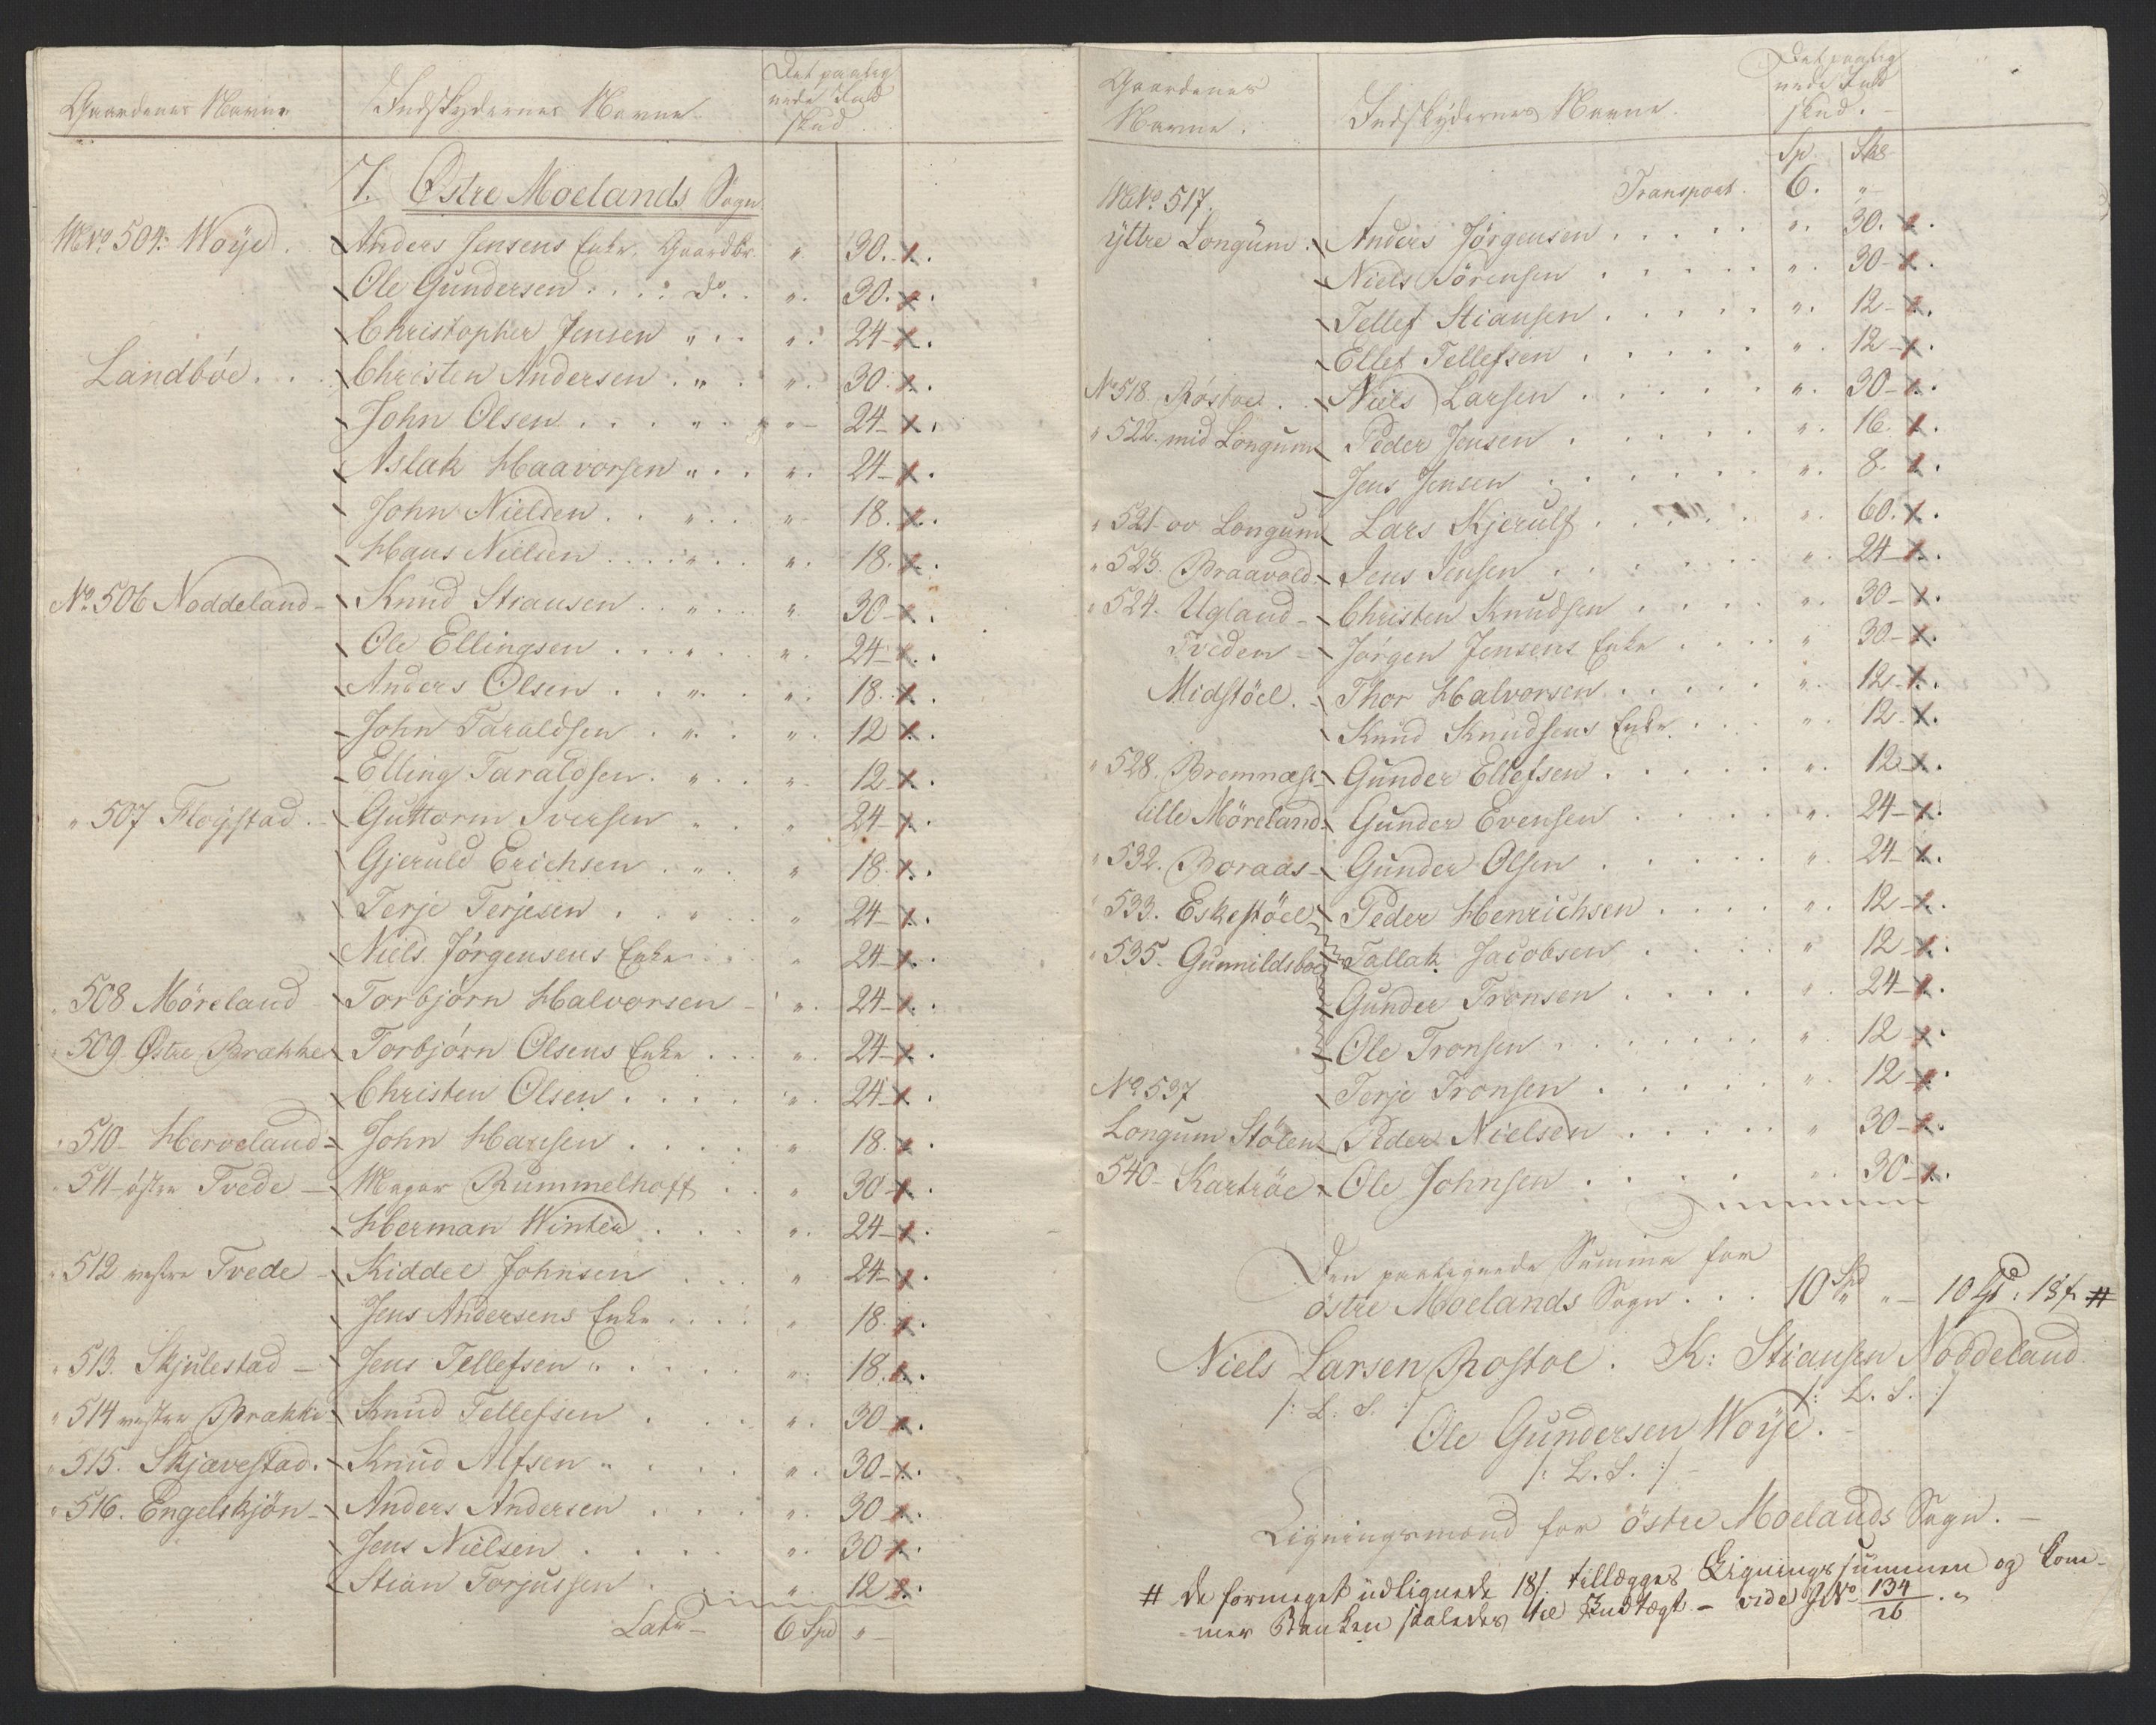 Gaardenes Navne Indskydernes Navne Det paalig
nede Ind
skud
7. Østre Moelands Sogn
MNo 504. Woÿe. Anders Jensens Enke, Gaardbr. " 30.
Ole Gundersen.... do.. " 30.
Christopher Jensen " .. " 24-
Landbøe... Christen Andersen . " . " 30.
John Olsen.... " " - 24-
Aslak Haavorsen " . . " 24-
John Nielsen . . " . . " 18.
Hans Nielsen .... " . . " 18.
No 506 Noddeland- Knud Stiansen . . " . . " 30-
Ole Ellingsen . . . " . . " 24-
Anders Olsen . . " . . " 18.
John Taraldsen . " . . " 12
Elling Taraldsen . " . . " 12-
" 507 Fløystad. - Guttorm Iversen " . . " 24-
Gjeruld Erichsen . " . " 18.
Terje Terjesen . . " . . " 24-
Niels Jörgensens Enke . . " 24-
" 508 Möreland - Torbjørn Halvorsen - " 24-
" 509 Østre Brække Torbjørn Olsens Enke . . . " 24-
Christen Olsen . . . . " 24-
" 510- Herveland- John Hansen . . . . " 18.
" 511- østre Tvede - Major Rummelhoff . . " 30-
Herman Winter . . . " 24-
" 512 vestre Tvede - Kiddel Johnsen . . . " 24-
Jens Andersens Enke . . . . " 18.
" 513. Skjulestad - Jens Tellefsen " . . . . " 18.
" 514 vestre Brække- Knud Tellefsen . . . . " 30
" 515. Skjævestad. Knud Alfsen " . . . . " 30-
" 516. Engelskjön- Anders Andersen . . . . " 30-
Jens Nielsen . . . . " 30
Stian Torjussen . . . " 12
Latr- 6 Spd " -
Gaardenes
Navne. Indskydernes Navne. Det paalig
nede Ind
skud. -
Sp. Sks
Transport. 6. "
MNo 517.
ÿttre Longum. Anders Jørgensen . . . . . " 30.
Niels Sörensen . . . . . " 30-
Tellef Stiansen . . . . . " 12-
Ellef Tellefsen . . . . . " 12-
No 518. Røstoe. . Niels Larsen . . . . . " 30-
" 522. mid Longum Peder Jensen . . . . . " 16.
Jens Jensen . . . . . . " 8.
" 521- ov. Longum Lars Kjerulf . . . . . " 60.
" 523. Braavold. Jens Jensen . . . . . . " 24-
" 524. Ugland- Christen Knudsen . . . . " 30-
Tveden - Jörgen Jensens Enke . . . . " 30-
Midstöel. - Thor Halvorsen . . . . . " 12-
Knud Knudsens Enke. . . . " 12-
" 528. Bremnæs- Gunder Ellefsen . . . . . " 12-
lille Möreland- Gunder Evensen . . . . . " 24-
" 532. Boraas- Gunder Olsen . . . . . " 24-
" 533. Eskestöel- Peder Henrichsen . . . . " 12-
" 535. Gunnildsboe Tallak Jacobsen . . . . " 12-
Gunder Tronsen . . . . " 24-
Ole Tronsen . . . . . . . " 12-
No 537 Terje Tronsen . . . . . " 12-
Longum Stölen Peder Nielsen . . . . . " 30-
540- Kartröe. Ole Johnsen . . . . " 30-
Den paalignede Summa for
östre Moelands Sogn. . . 10 Spd " - 10 Sp. 18 s #
Niels Larsen Røstoe. K: Stiansen Noddeland.
/: L. S. :/ /: L. S. :/
Ole Gundersen Woÿe. -
/: L. S. :/ -
Ligningsmænd for östre Moelands Sogn. -
# de formeget udlignede 18 s. tillægges Ligningssummen og kom-
mer Banken saaledes til Indtægt. - vide JNo 134/26. "